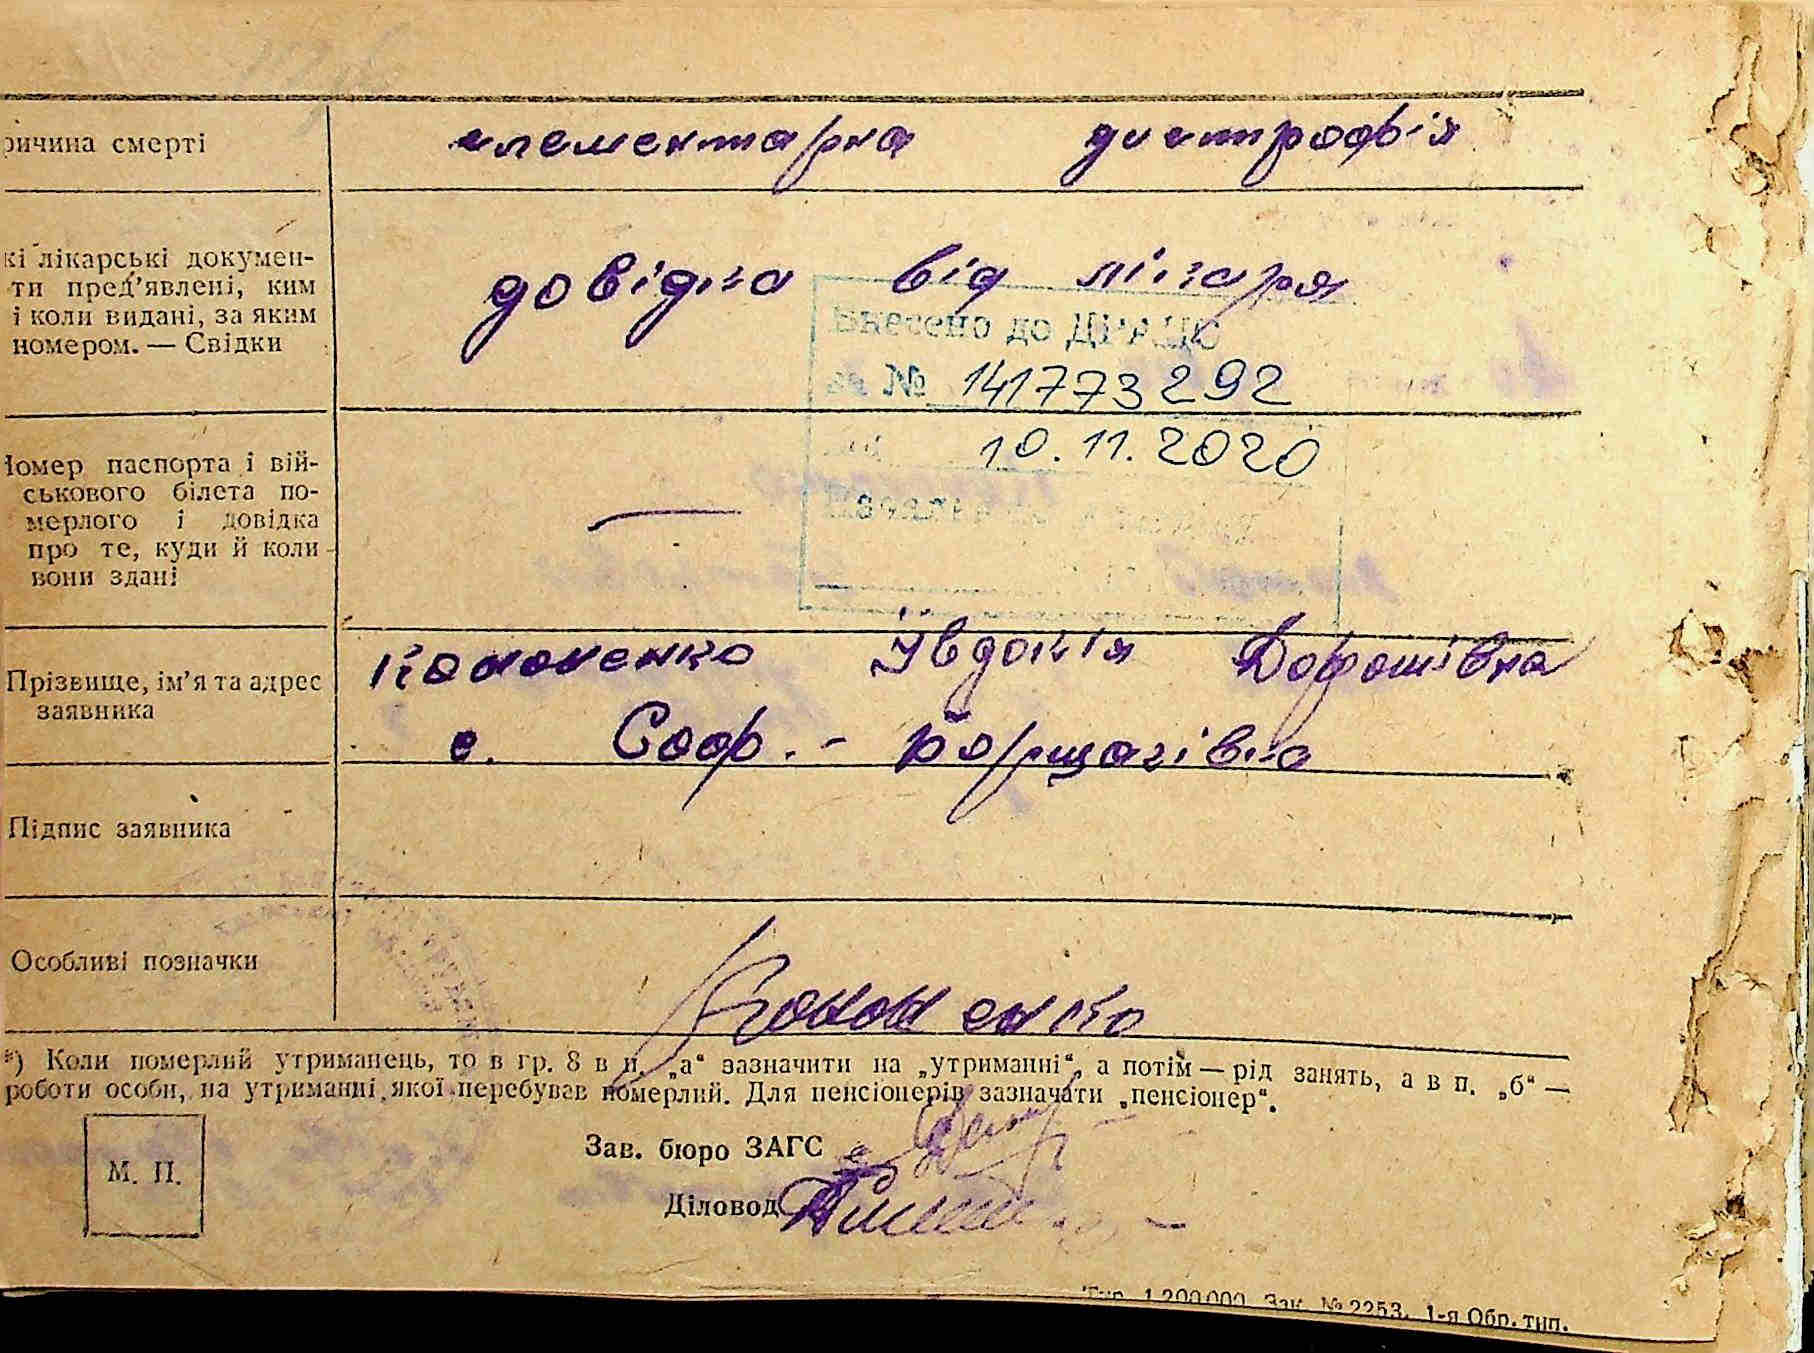 ричина смерті
елементарна дистрофія
кі лікарські докумен-
ти пред'явлені, ким
і коли видані, за яким
номером. — Свідки
довідка від лікаря
Внесено до ДРАЦС
за № 141773292
10.11.2020
Номер паспорта і вій-
ськового білета по-
мерлого і довідка
про те, куди й коли
вони здані
—
Прізвище, ім'я та адрес
заявника
Кононенко Ївдокія Дорошівна
с. Соф. - Борщагівка
Підпис заявника
Особливі позначки
Кононенко
*) Коли померлий утриманець, то в гр. 8 в п. „а“ зазначити на „утриманні“, а потім — рід занять, а в п. „б“ —
роботи особи, на утриманні якої перебував померлий. Для пенсіонерів зазначати „пенсіонер“.
М. П.
Зав. бюро ЗАГС
Діловод
Тир. 1.200.000. Зак. № 2253. 1-я Обр. тип.